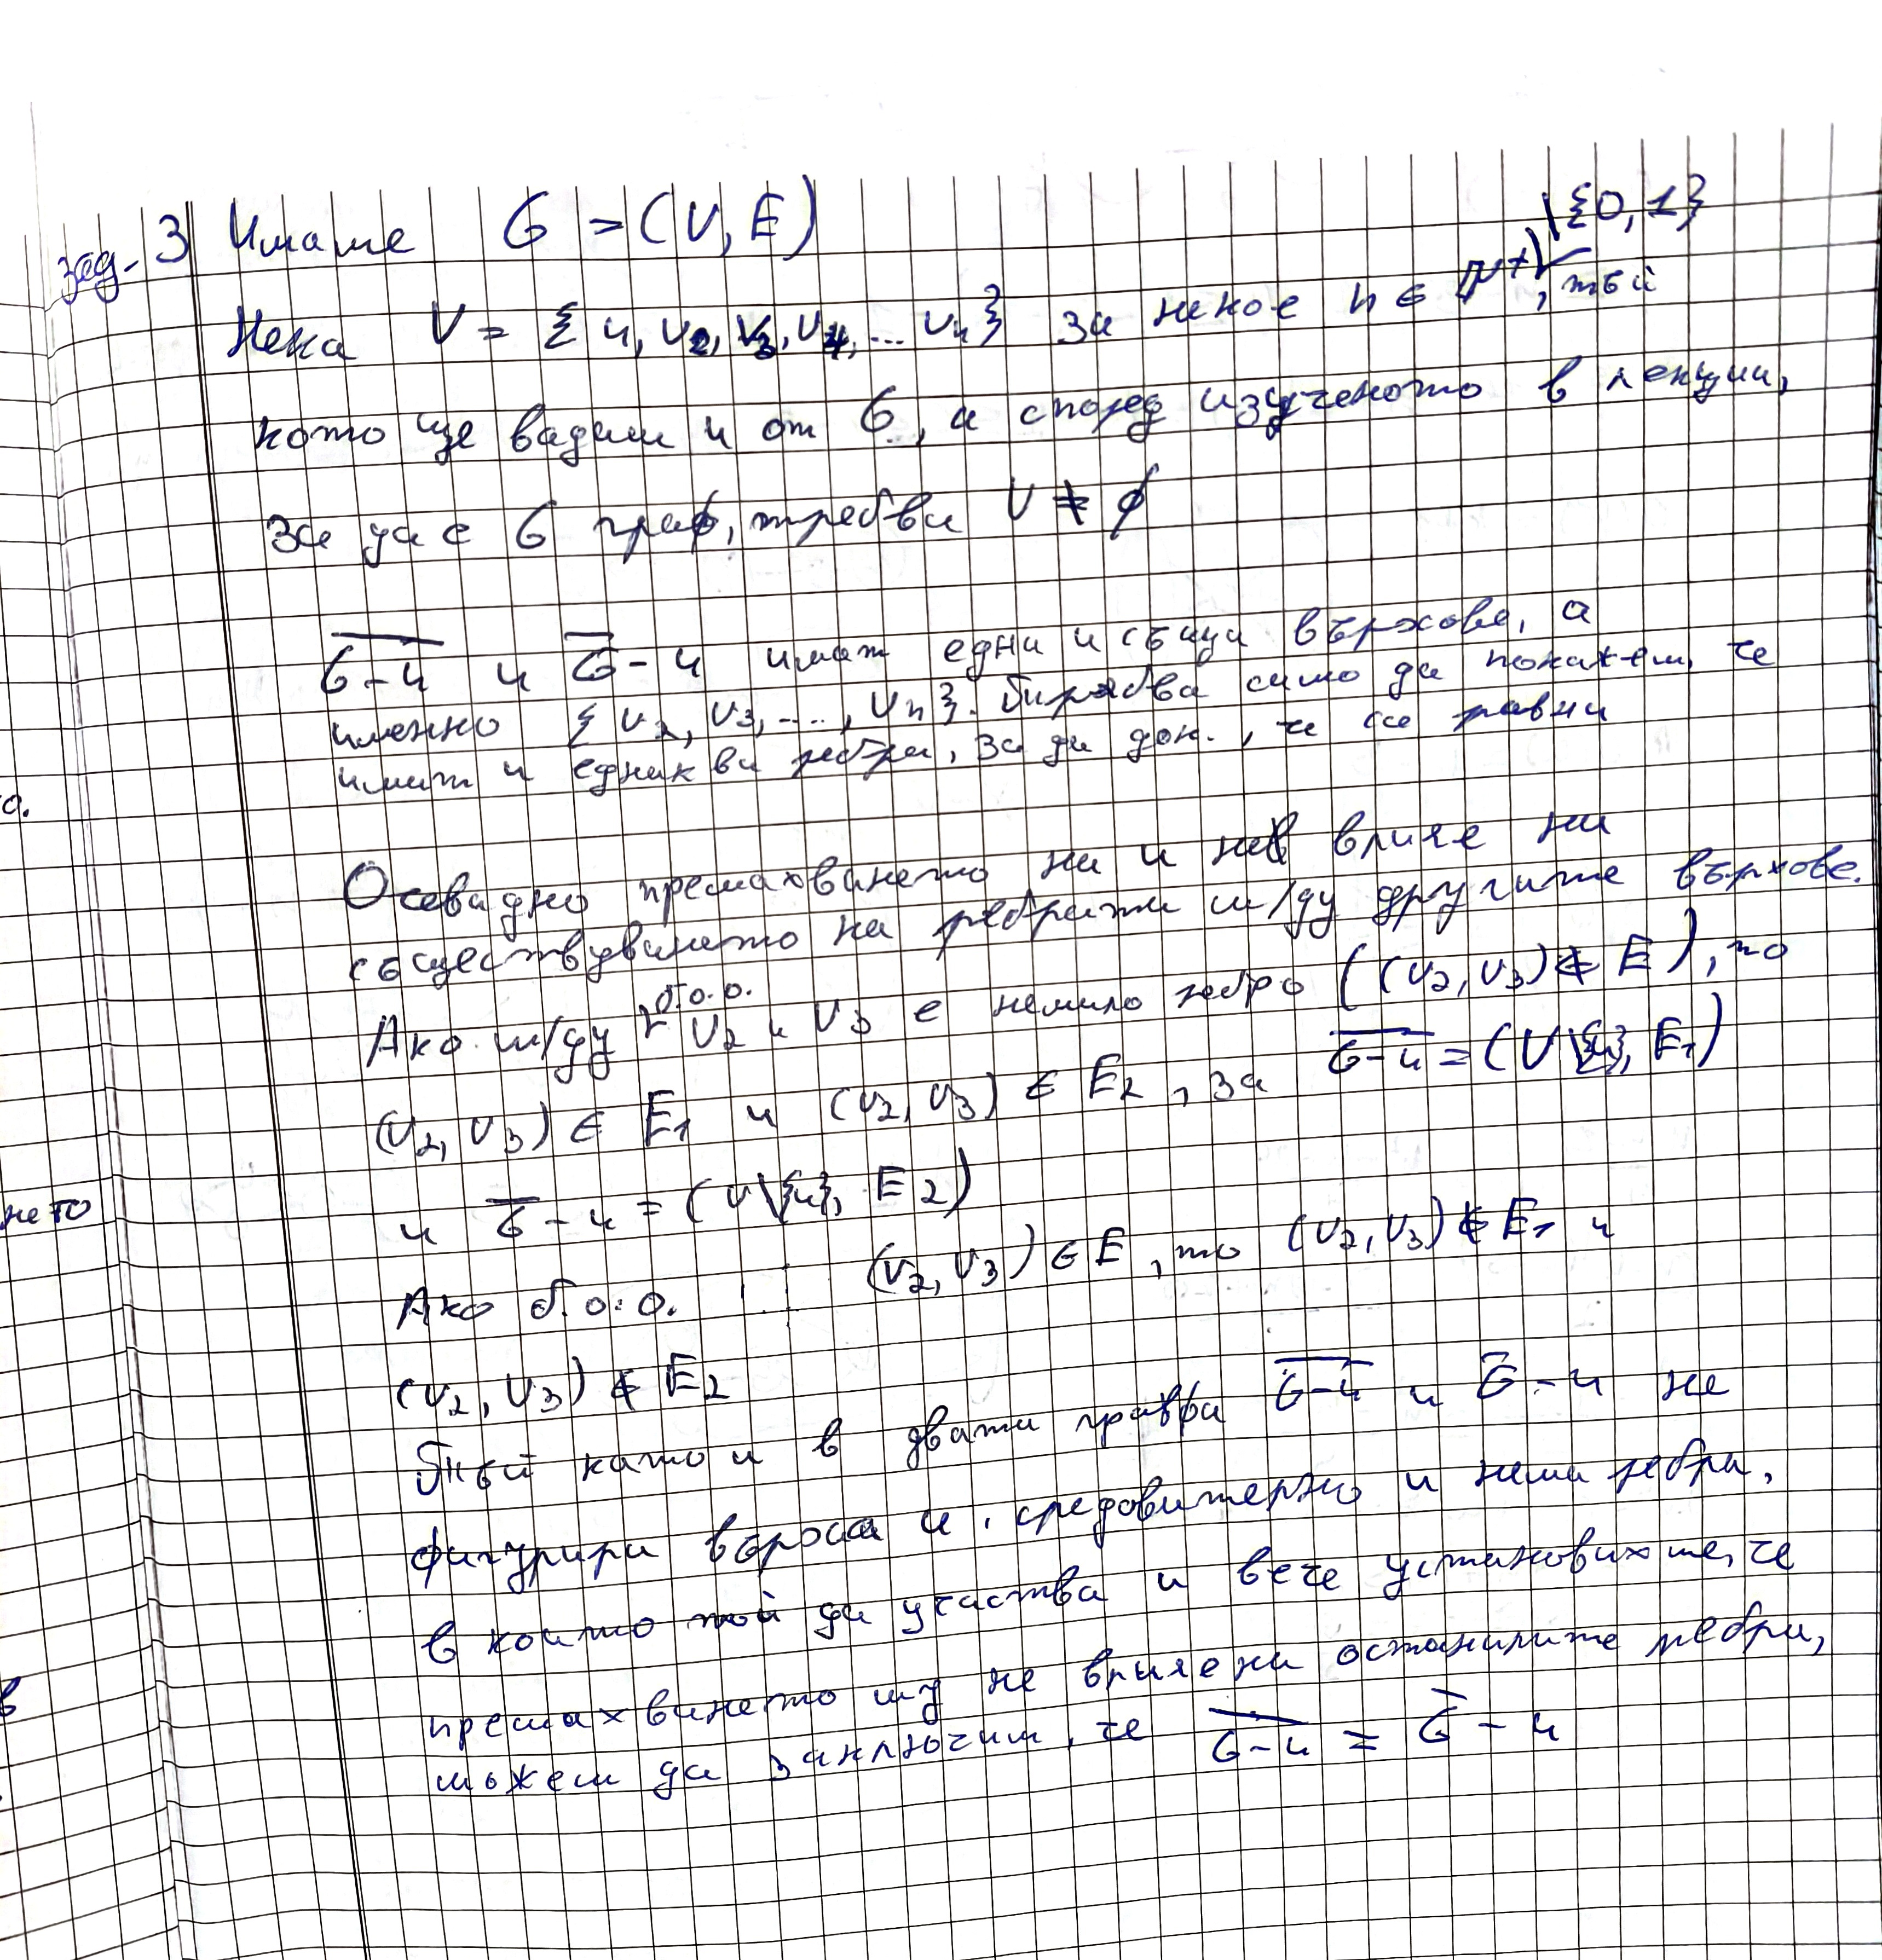 зад. 3 Имаме G = (V, E)
\{0, 1}
Нека V = {u, v2, v3, v4, ... vn} за някое n ∈ ℕ+, тъй
като ще вадим u от G, а според изученото в лекции,
за да е G граф, трябва V ≠ ∅
G-u и G̅ - u имат едни и същи върхове, а
именно {v2, v3, ...., vn}. Трябва само да покажем, че
имат и еднакви ребра, за да док., че са равни
а.
Очевадно премахването на u не влияе на
съществуването на ребрата м/ду другите върхове.
Ако м/ду б.о.о. v2 и v3 е нямало ребро ((v2, v3) ∉ E), то
(v2, v3) ∈ E1 и (v2, v3) ∈ E2, за G-u = (V\{u}, E1)
нето
и G̅ - u = (V\{u}, E2)
Ако б.о.о. (v2, v3) ∈ E, то (v2, v3) ∉ E1 и
(v2, v3) ∉ E2
Тъй като и в двата графа G-u и G̅ - u не
фигурира върха u, следователно и няма ребра,
в които той да участва и вече установихме, че
в
премахването му не влияе на останалите ребра,
можем да заключим, че G-u = G̅ - u